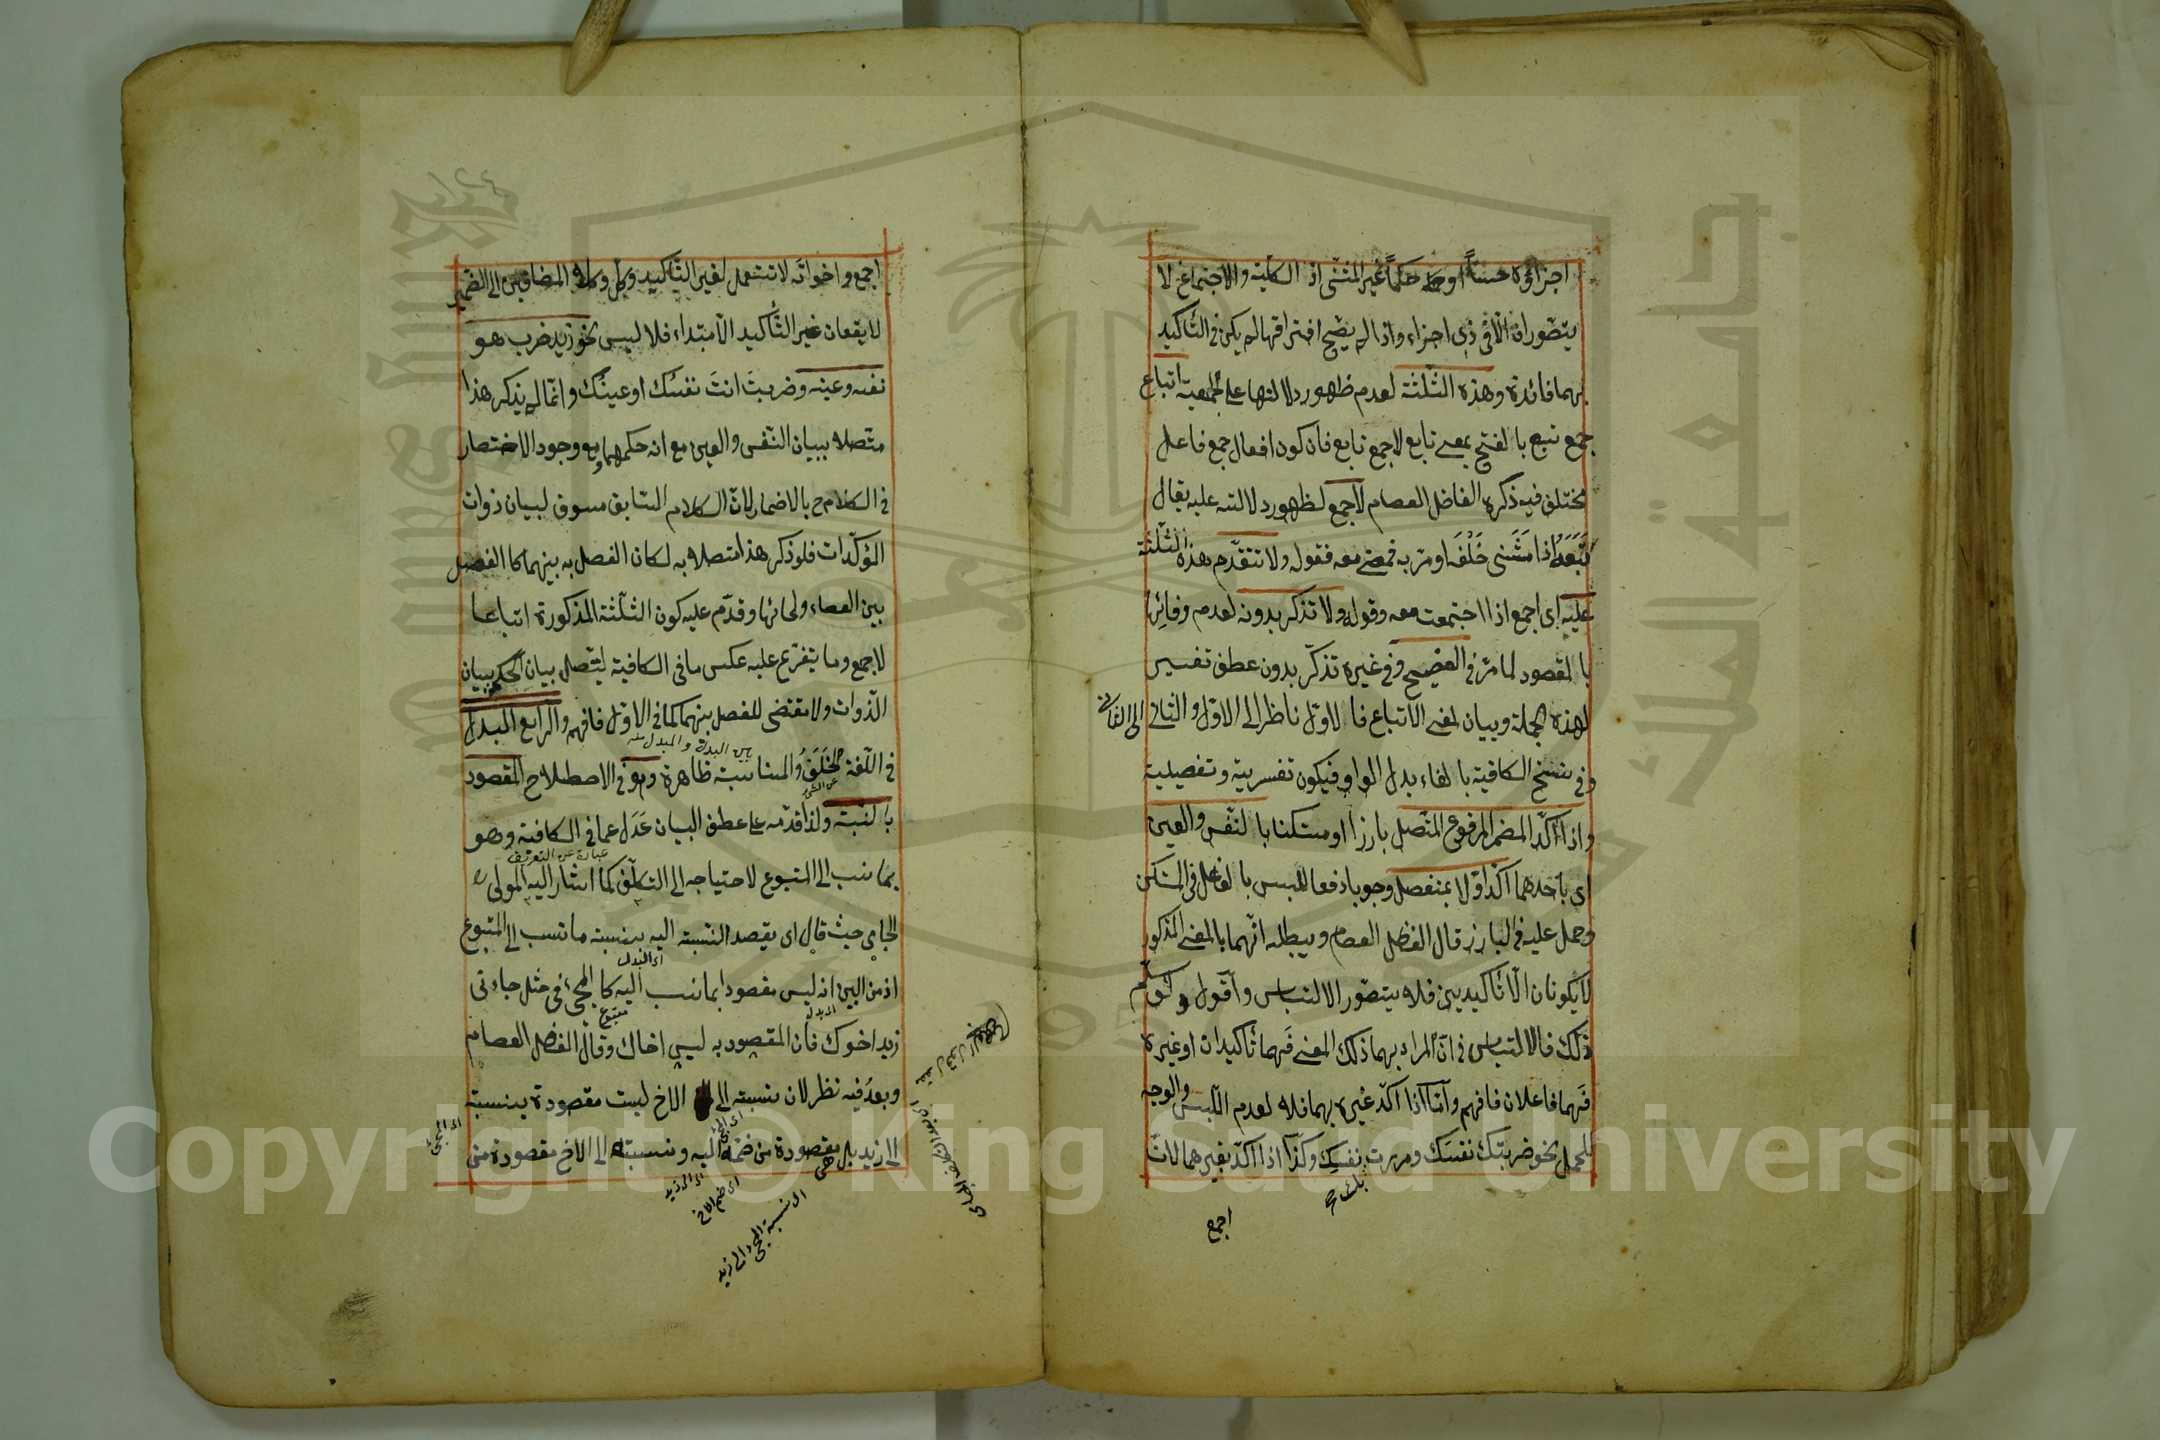 اجزاؤه حسًّا او حكمًا غير المثنى اذ الكلية والاجتماع لا
يتصوران الا فى ذى اجزاء واذا لم يصح افتراقها لم يكن فى التأكيد
بهما فائدة وهذه الثلثة لعدم ظهور دلالتها على الجمعية اتباع
جمع تبع بالفتح بمعنى تابع لا جمع تابع فان كون افعال جمع فاعل
مختلف فيه ذكره الفاضل العصام لاجمع لظهور دلالته عليه يقال
تَبَعَهُ اذا مَشَى خَلْفَه او مرّ به فمضى معه فقوله ولا تتقدّم هذه الثلثة
عليه اى اجمع اذا اجتمعت معه وقوله ولا تذكر بدونه لعدم وفائها
بالمقصود لما مرّ فى الفصيح وفى غيره تذكر بدون عطف تفسير
لهذه الجملة وبيان لمعنى الاتباع فالاول ناظر الى الاول والثانى
الى الثانى
وفى نسخ الكافية بالفاء بدل الواو فيكون تفسرية وتفصيلية
واذا اكّد المضمر المرفوع المتصل بارزا او مستكنا بالنفس والعين
اى باحدهما اكّد اوّلا بمنفصل وجوبا دفعا للبس بالفاعل فى المستكن
وحمل عليه فى البارز قال الفاضل العصام ويبطله انهما بالمعنى المذكور
لا يكونان الا تأكيدين فلا يتصور الالتباس واقول ولو سلّم
ذلك فالالتباس فى ان المراد بهما ذلك المعنى فهما تأكيدات او غيره
فهما فاعلان فافهم وامّا اذا اكّد غيره بهما فلا لعدم اللبس والوجه
للحمل نحو ضربتك نفسَك ومررت نفسِك وكذا اذا اكّد بغيرهما لانّ
بك
اجمع
اجمع واخواته لا تستعمل لغير التأكيد وكل وكلا المضافين الى الضمير
لا يقعان غير التأكيد الا مبتداء فلا لبس نحو زيد ضرب هو
نفسه وعينه وضربتَ انتَ نفسُك او عينُك وانما لم يذكر هذا
متصلا ببيان النفس والعين مع انه حكمهما ومع وجود الاختصار
فى الكلام ح بالاضمار لان الكلام السابق مسوق لبيان ذوات
المؤكدات فلو ذكر هذا متصلا به لكان الفصل به بينهما كالفصل
بين العصاء ولحائها وقدّم عليه كون الثلثة المذكورة اتباعا
لاجمع وما يتفرّع عليه عكس ما فى الكافية ليتصل بيان الحكم ببيان
الذوات ولا مقتضى للفصل بينهما كما فى الاول فافهم والرابع البدل
بين البدل والمبدل منه
فى اللغة الخَلَفُ والمناسبة ظاهرة وهو فى الاصطلاح المقصود
عن الشئ
بالنسبة ولذا قدّمه على عطف البيان عَدَل عما فى الكافية وهو
عبارة عن التعريف
بما نسب الى المتبوع لاحتياجه الى التكلّف كما اشار اليه المولى
الجامى حيث قال اى يقصد النسبة اليه بنسبة ما نسب الى المتبوع
اى البدل
اذ من البين انه ليس مقصودا بما نسب اليه كالمجئ فى مثل جاءنى
البدل متبوع
زيد اخوك فان المقصود به ليس اخاك وقال الفاضل العصام
وبعدُ فيه نظر لان نسبته الى الاخ ليست مقصودة بنسبة
اى المجئ
الى زيد بل مقصودة من ضمّه اليه ونسبته الى الاخ مقصودة من
اى المجئ
اى الى زيد
اى ضم الاخ
النسبة المجئ الى زيد